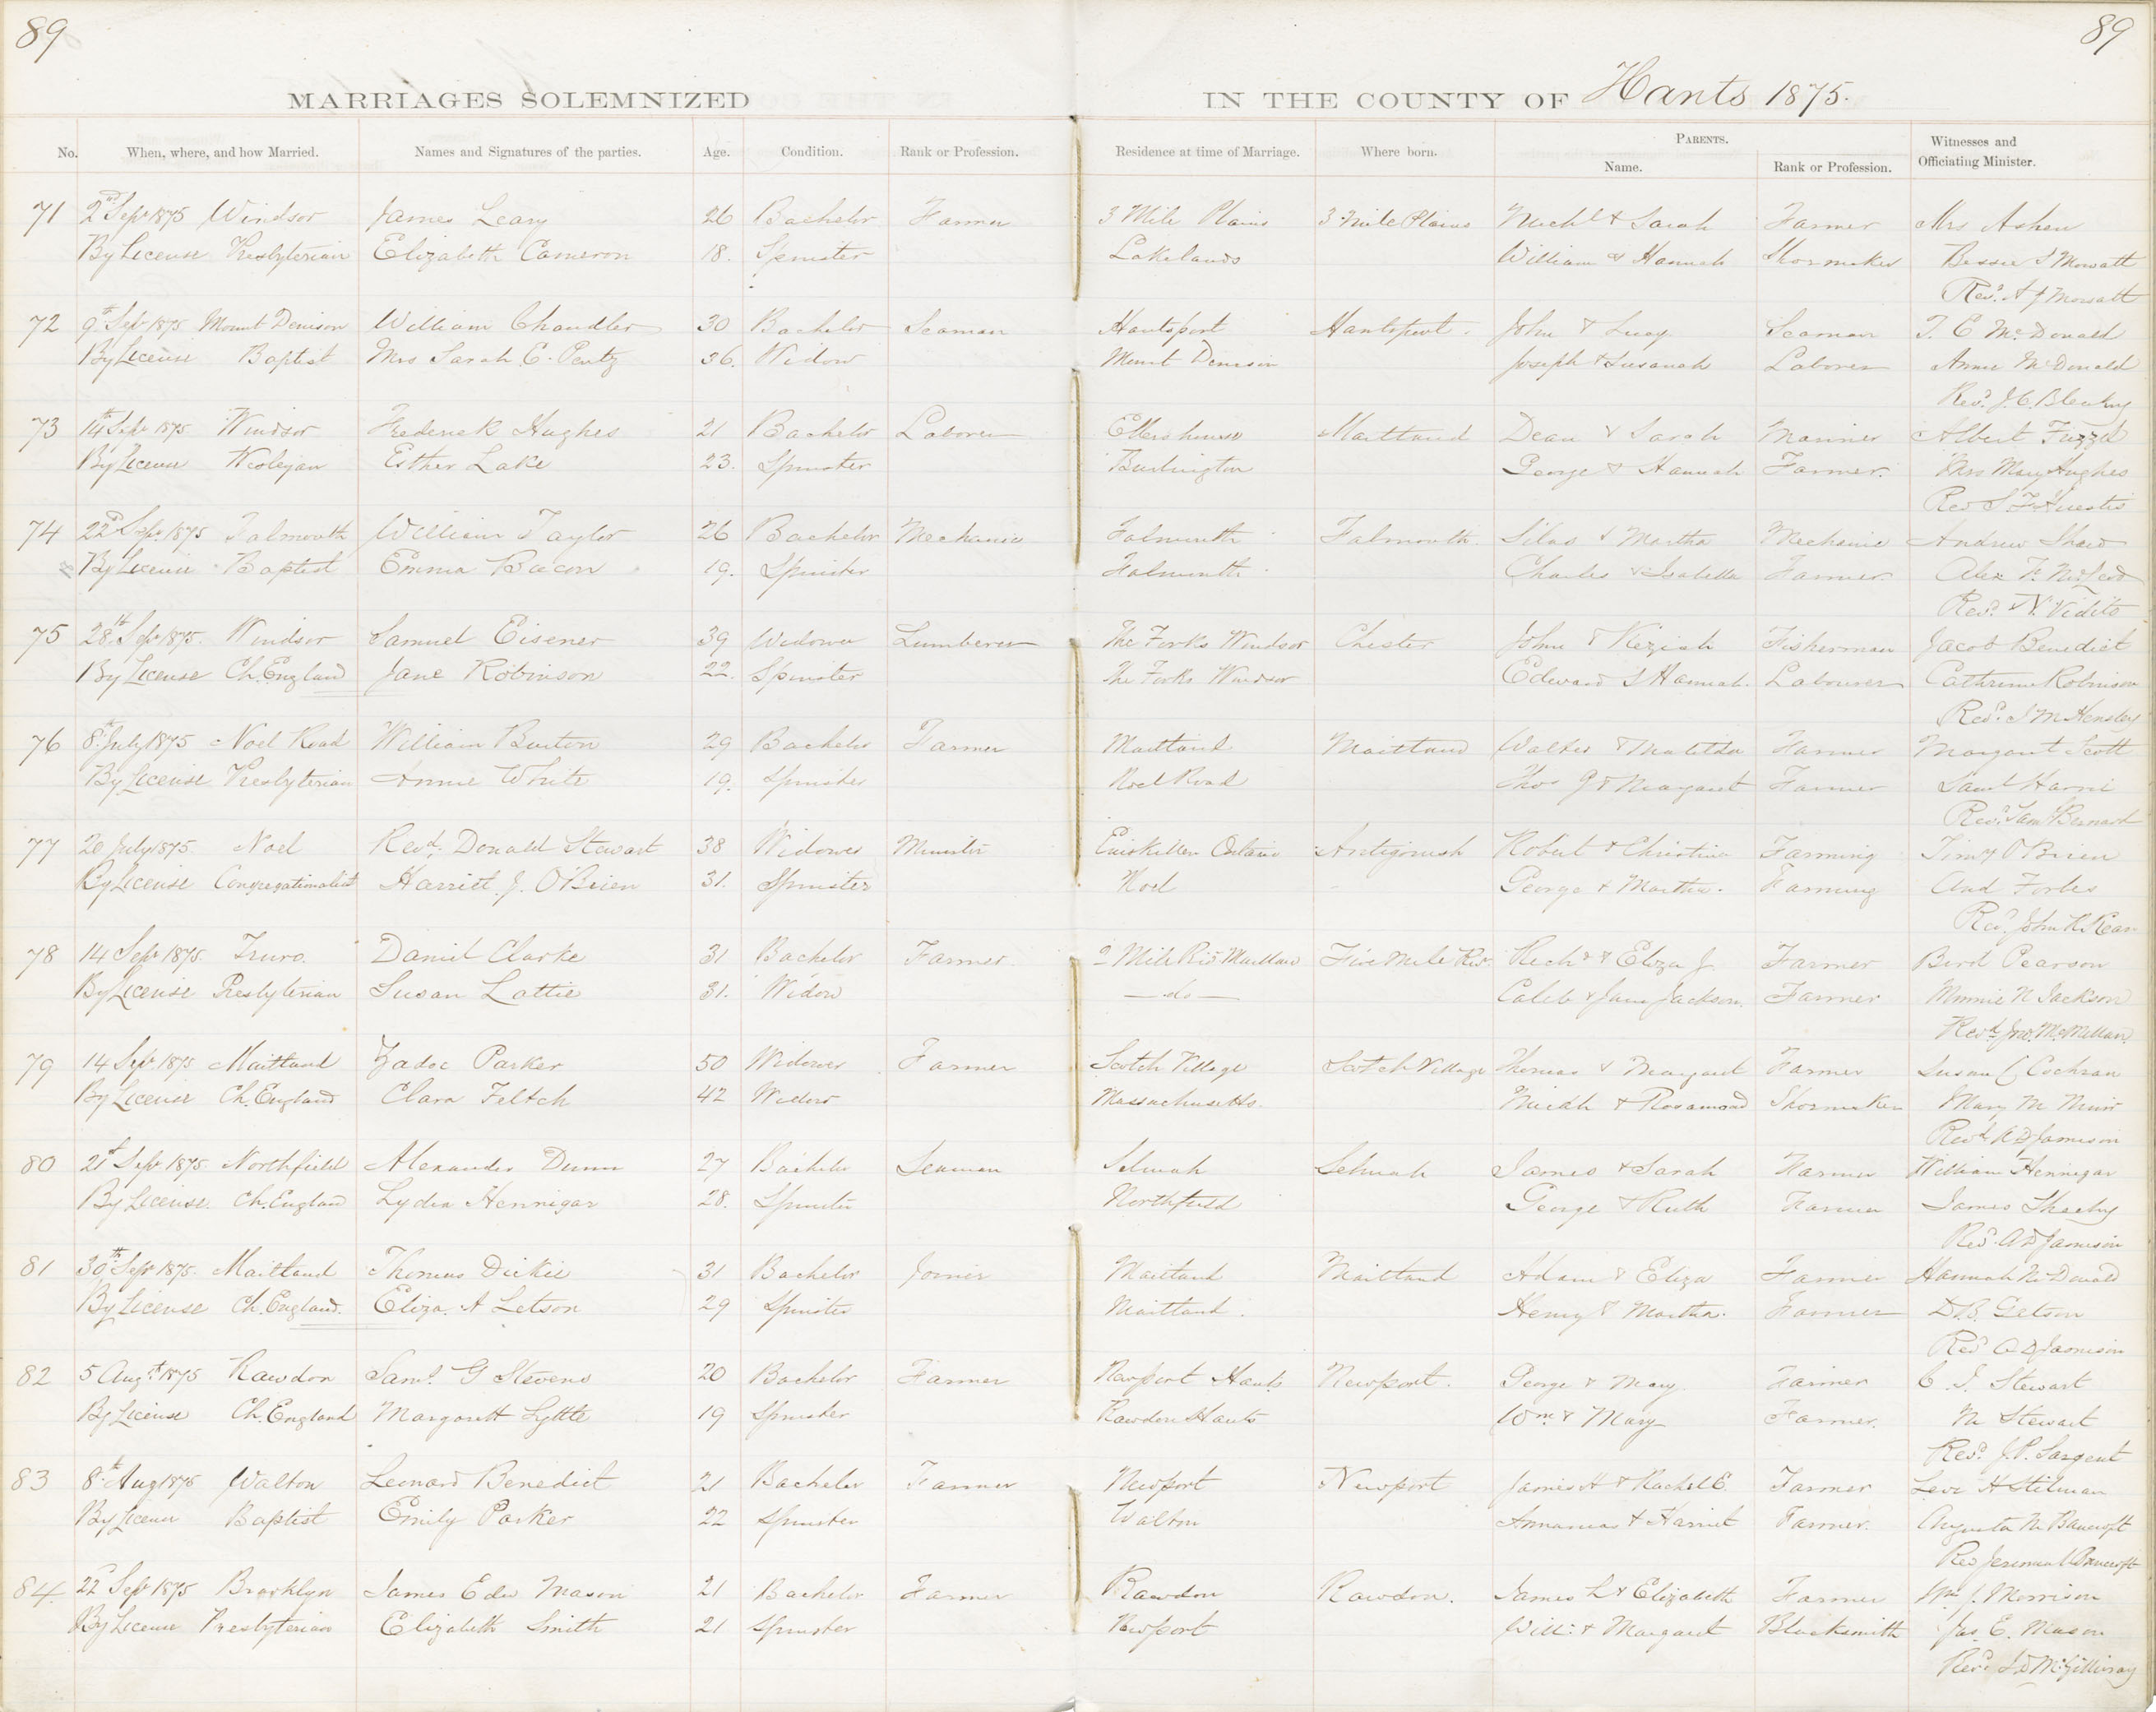 89 89
MARRIAGES SOLEMNIZED IN THE COUNTY OF Hants 1875.
No. When, where, and how Married. Names and Signatures of the parties. Age. Condition. Rank or Profession. Residence at time of Marriage. Where born. PARENTS. Name. Rank or Profession. Witnesses and Officiating Minister.
71 2nd Sept 1875 Windsor James Leary 26 Bachelor Farmer 3 Mile Plains 3 Mile Plains Michl & Sarah Farmer Mrs Ashen
By License Presbyterian Elizabeth Cameron 18. Spinster Lakelands William & Hannah Shoemaker Bessie S Mowatt
Revd. A J Mowatt
72 9th Sept 1875 Mount Denison William Chandler 30 Bachelor Seaman Hantsport Hantsport. John & Lucy Seaman T. E McDonald
By License Baptist Mrs Sarah E. Pentz 36. Widow Mount Denison Joseph & Susanah Laborer Annie McDonald
Revd. J. C. Bleakny
73 14th Sept 1875 Windsor Frederick Hughes 21 Bachelor Laborer Ellershouse Maitland Dean & Sarah Mariner Albert Frizzel
By License Wesleyan Esther Lake 23. Spinster Burlington George & Hannah Farmer. Mrs Mary Hughes
Revd S F Huestis
74 22d Sept 1875 Falmouth William Taylor 26 Bachelor Mechanic Falmouth Falmouth. Silas & Martha Mechanic Andrew Shaw
By License Baptist Emma Bacon 19. Spinster Falmouth Charles & Isabella Farmer Alex F. McLeod
Revd. N. Vidito
75 28th Sept 1875. Windsor Samuel Eisener 39 Widower Lumberer The Forks Windsor Chester John & Keziah Fisherman Jacob Benedict
By License Ch. England Jane Robinson 22. Spinster The Forks Windsor Edward & Hannah. Labourer Cathrine Robinson
Revd. J M Hensley
76 8th July 1875 Noel Road William Burton 29 Bachelor Farmer Maitland Maitland Walter & Matilda Farmer Margaret Scott
By License Presbyterian Annie White 19. Spinster Noel Road Thos G & Margaret Farmer Saml Harvie
Revd. Saml Bernard
77 20 July 1875 Noel Revd. Donald Stewart 38 Widower Minister Eniskillen Ontario Antigonish Robert & Christina Farming Timy O'Brien
By License Congregationalist Harriet J. O'Brien 31. Spinster Noel George & Martha. Farming And Forbes
Revd. John R. Kean
78 14 Sept 1875. Truro. Daniel Clarke 31 Bachelor Farmer 9 Mile Riv. Maitland Five Mile Riv. Richd & Eliza J Farmer Bird Pearson
By License Presbyterian Susan Lattie 31. Widow — do — Caleb & Jane Jackson. Farmer Minnie N Jackson
Revd. Jno. McMillan.
79 14 Sept 1875 Maitland Zadoc Parker 50 Widower Farmer Scotch Village Scotch Village Thomas & Margaret Farmer Susan C Cochran
By License Ch. England Clara Feltch 42 Widow Massachusetts. Micah & Rosamond Shoemaker Mary M Muir
Revd. A D Jamison
80 21st Sept 1875. Northfield Alexander Dunn 27 Bachelor Seaman Selmah Selmah James & Sarah Farmer William Hennigar
By License. Ch. England Lydia Hennigar 28. Spinster Northfield George & Ruth Farmer James Sheehy
Revd. A D Jamison
81 30th Sept 1875. Maitland Thomas Dickie 31 Bachelor Joiner Maitland Maitland Adam & Eliza Farmer Hannah McDonald
By License Ch. England. Eliza. A Letson 29 Spinster Maitland. Henry & Martha. Farmer D. B. Letson
Revd A D Jamison
82 5 Augst 1875 Rawdon Saml. G Stevens 20 Bachelor Farmer Newport Hants Newport. George & Mary Farmer C. J. Stewart
By License Ch. England Margarett Lyttle 19 Spinster Rawdon Hants Wm. & Mary Farmer. M Stewart
Revd. J. P. Sargent
83 8th Aug 1875 Walton Leonard Benedict 21 Bachelor Farmer Newport Newport James H & Rachel E Farmer Levi H Stilman
By License Baptist Emily Parker 22 Spinster Walton Annanias & Harriet Farmer. Augusta M Bancroft
Revd Jeremiah Bancroft
84. 22d Sept 1875 Brooklyn James Edw Mason 21 Bachelor Farmer Rawdon Rawdon. James L & Elizabeth Farmer Wm J. Morrison
By License Presbyterian Elizabeth Smith 21 Spinster Newport Will: & Margaret Blacksmith Jas. E. Mason
Revd. J D McGillivray